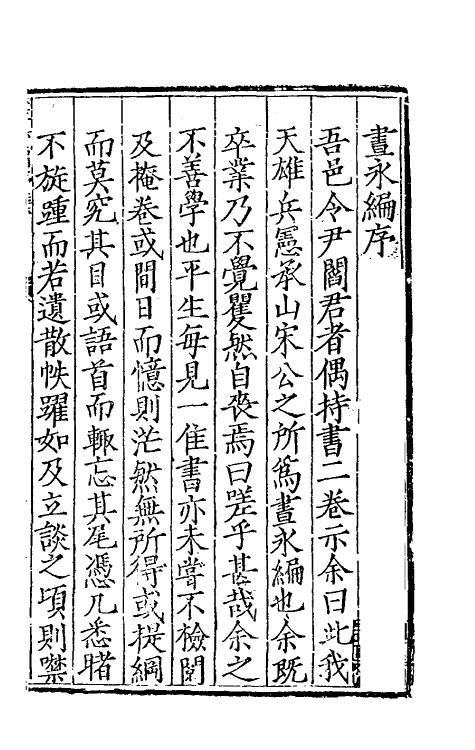 晝永編序
吾邑令尹閻君者偶持書二卷示余曰此我
天雄兵憲承山宋公之所爲晝永編也余既
卒業乃不覺瞿然自喪焉曰嗟乎甚哉余之
不善學也平生每見一隹書亦未嘗不檢閱
及掩卷或間日而憶則茫然無所得或提綱
而莫究其目或語首而輒忘其尾憑几悉睹
不旋踵而若遺散帙躍如及立談之頃則噤